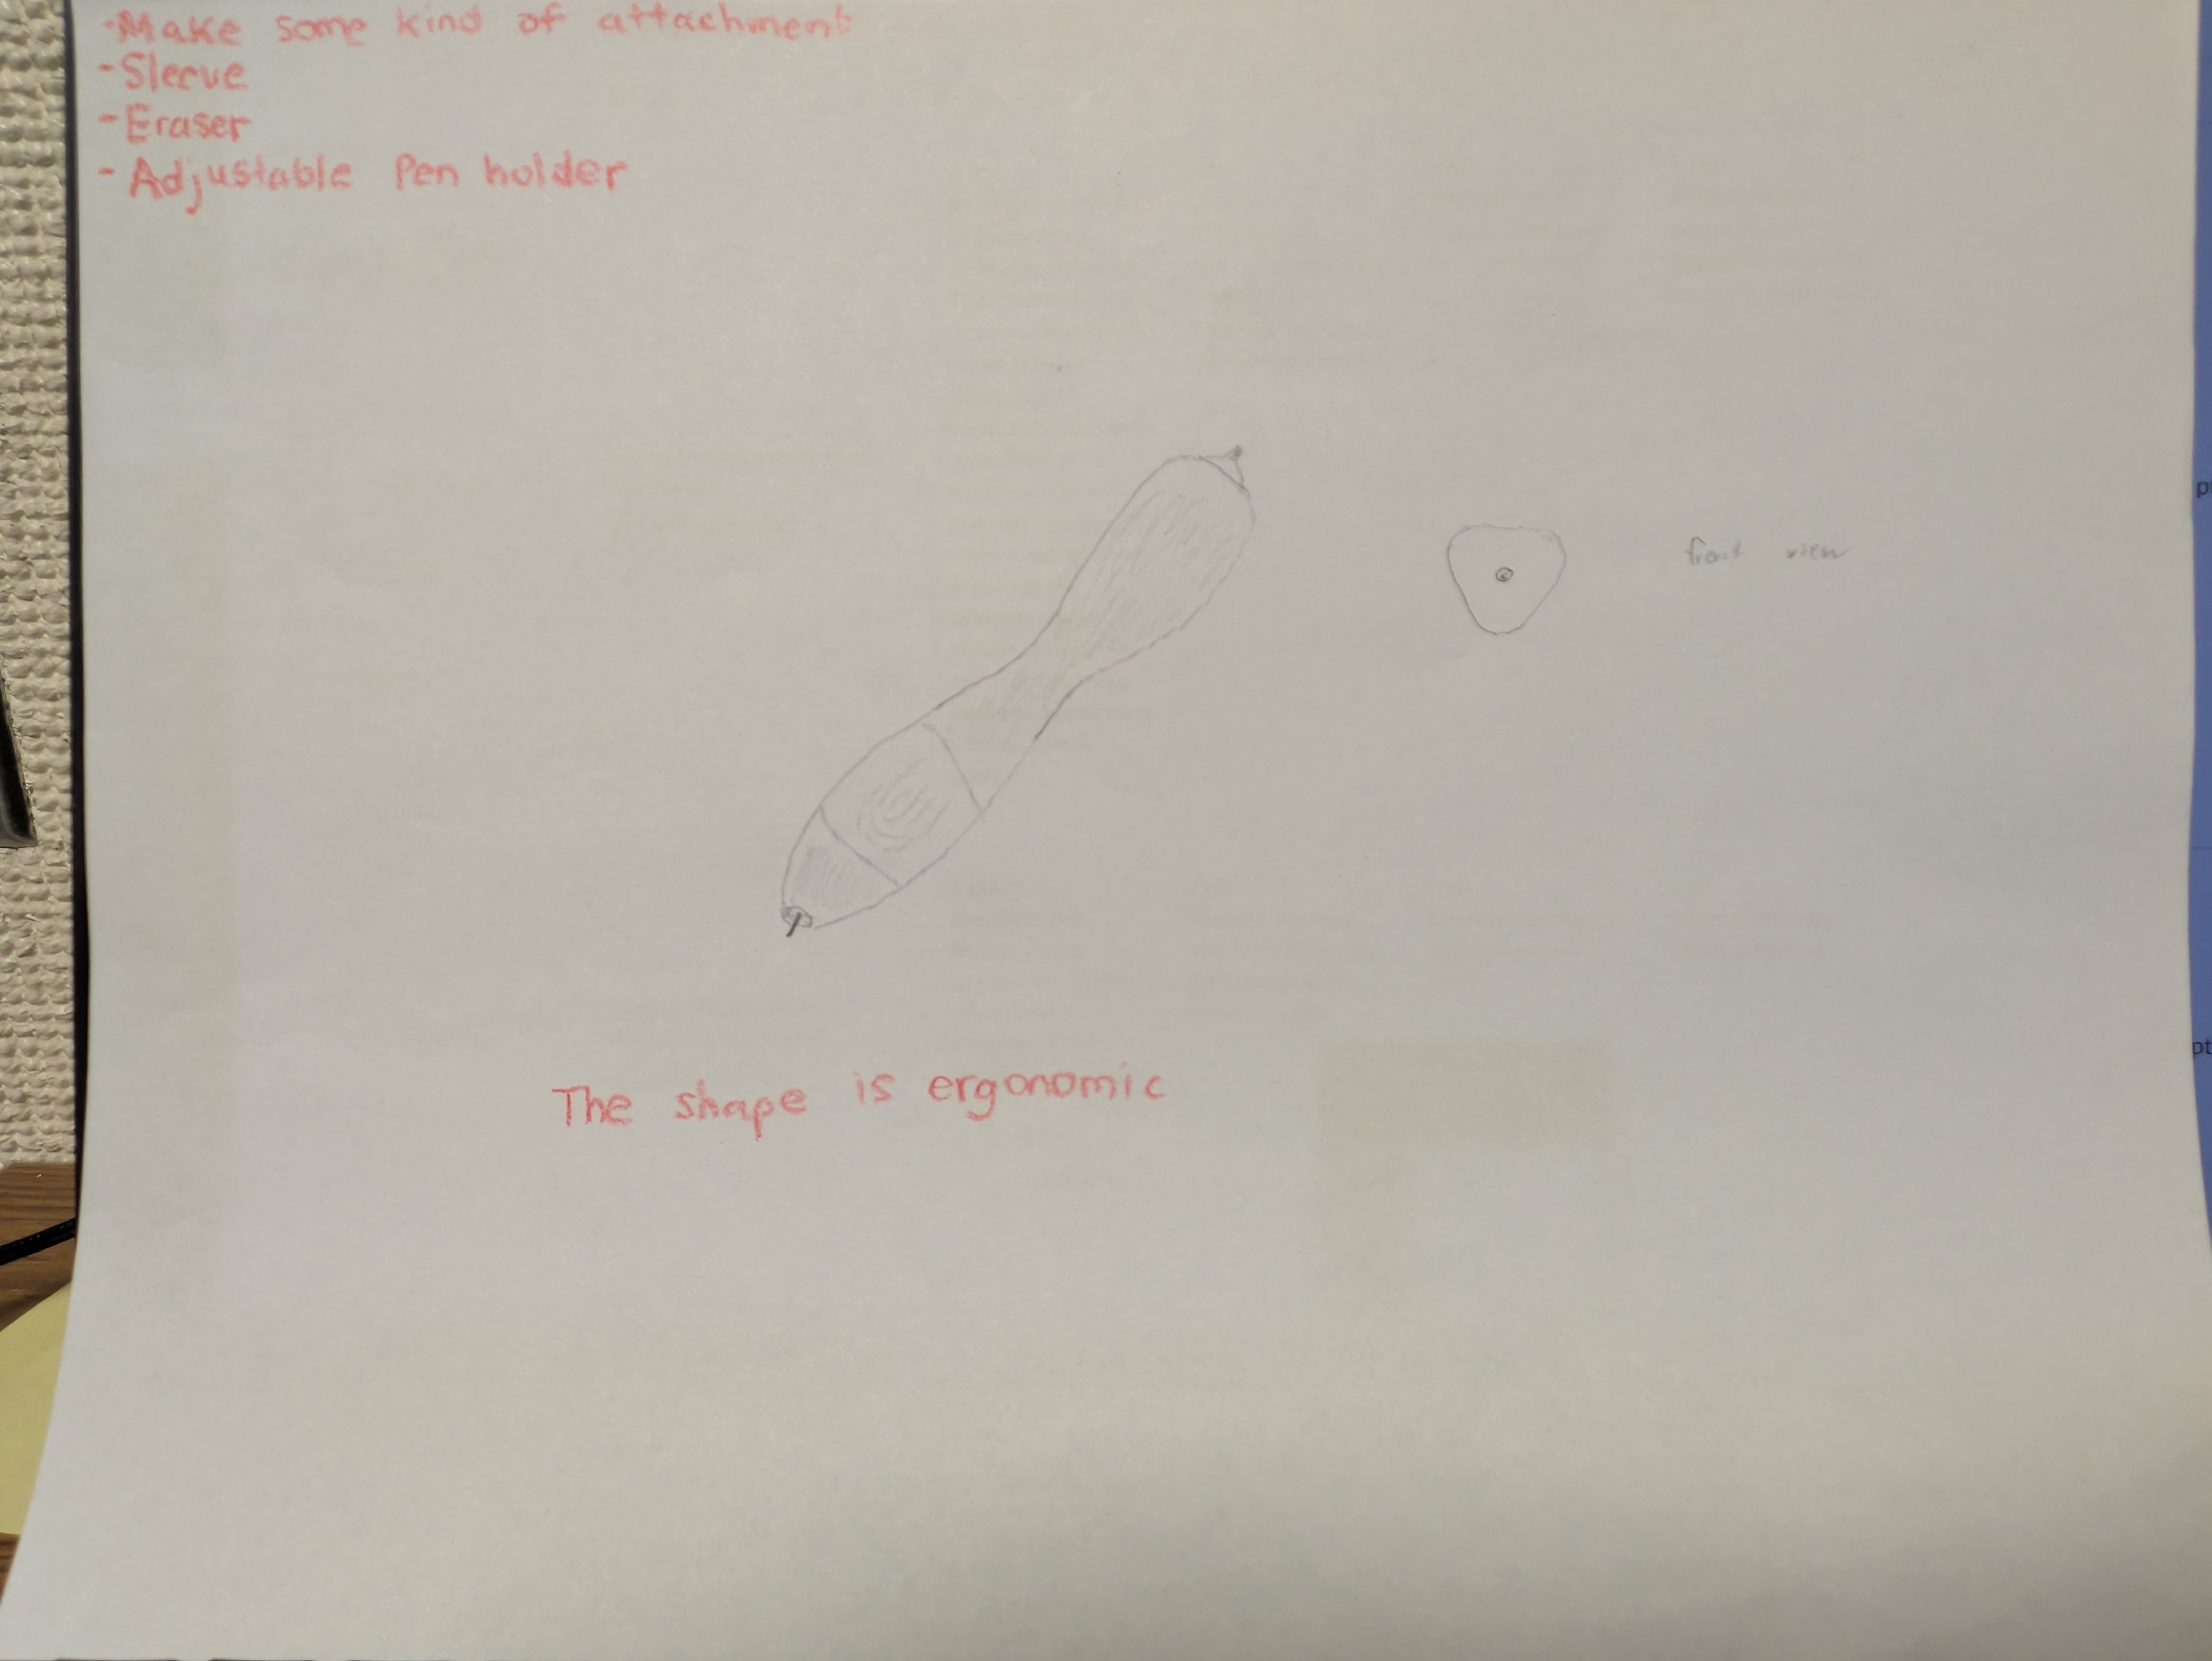 -Make some kind of attachment
-Sleeve
-Eraser
- Adjustable Pen holder
front view
The shape is ergonomic